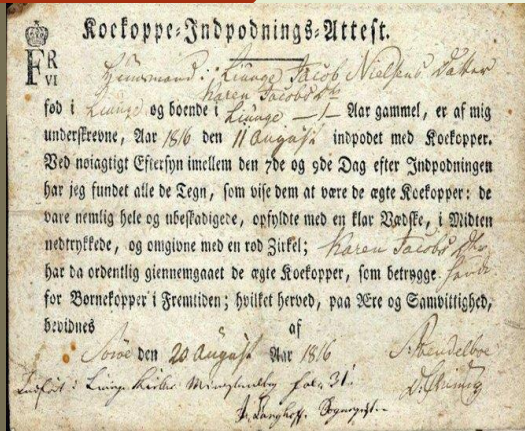 Koekoppe-Indpodnings-Attest.
F R
VI
Huusmand i Liunge Jacob Nielsens Datter
Karen Jacobs Dr
fød i Liunge og boende i Liunge — 1 — Aar gammel, er af mig
underskrevne, Aar 1816 den 11 August indpodet med Koekopper.
Ved nøiagtigt Eftersyn imellem den 7de og 9de Dag efter Indpodningen
har jeg fundet alle de Tegn, som vise dem at være de ægte Koekopper: de
vare nemlig hele og ubeskadigede, opfyldte med en klar Vædske, i Midten
nedtrykkede, og omgivne med en rød Zirkel; Karen Jacobs Dr
har da ordentlig giennemgaaet de ægte Koekopper, som betrygge
for Børnekopper i Fremtiden; hvilket herved, paa Ære og Samvittighed,
bevidnes af
Sorøe den 20 August Aar 1816
Indført i Liunge Kirkes fol. 31.